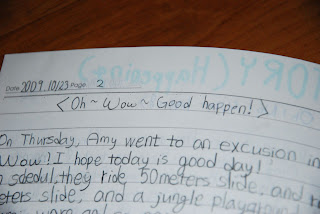 TORY (Happening)
Date 2009.10/23 Page 2
<Oh~Wow~Good happen!>
On Thursday, Amy went to an excusion in
Wow! I hope today is good day!
they ride 50meters slide, and
eters slide, and a jungle playground